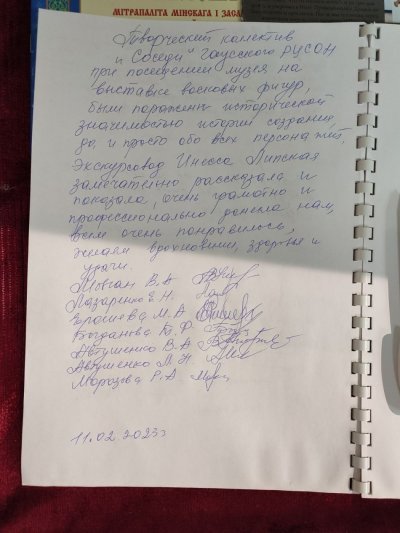 МІТРАПАЛІТА МІНСКАГА І ЗАСЛ
Творческий колектив
и Соседи" Гаусского РУСОН
при посещении музея на
выставке восковых фигур,
были поражены исторической
значимостью истории создания,
да и просто обо всех персонажах,
Экскурсовод Инесса Липская
замечательно рассказала и
показала, очень грамотно и
профессионально донела нам,
всем очень понравилось,
желаем вдохновения, здоровья и
удачи.
Мовсан В.А
Лазаренко Е.Н.
Ерошева М.А
Богданова Г.Ф
Автушенко В.А
Автушенко М.Н.
Морозова Р.А
11.02 2023г